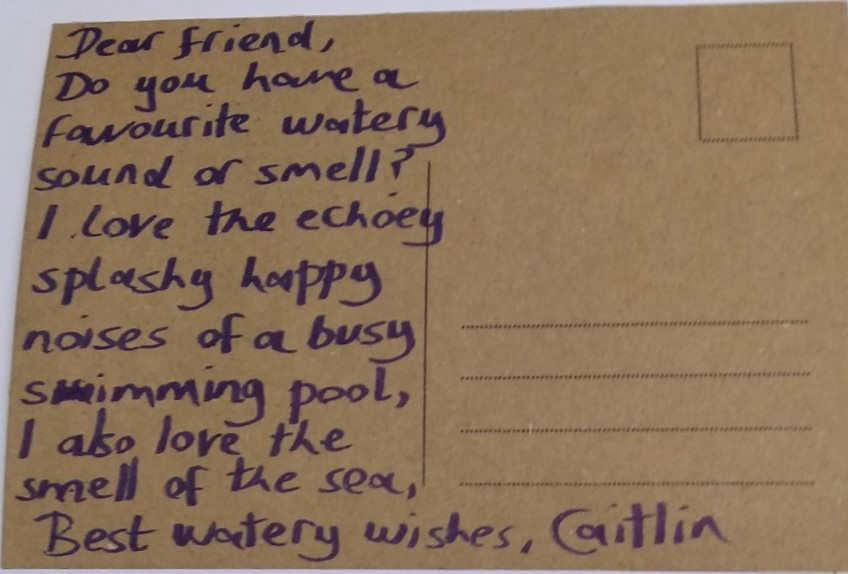 Dear friend,
Do you have a
favourite watery
sound or smell?
I love the echoey
splashy happy
noises of a busy
swimming pool,
I also love the
smell of the sea,
Best watery wishes, Caitlin